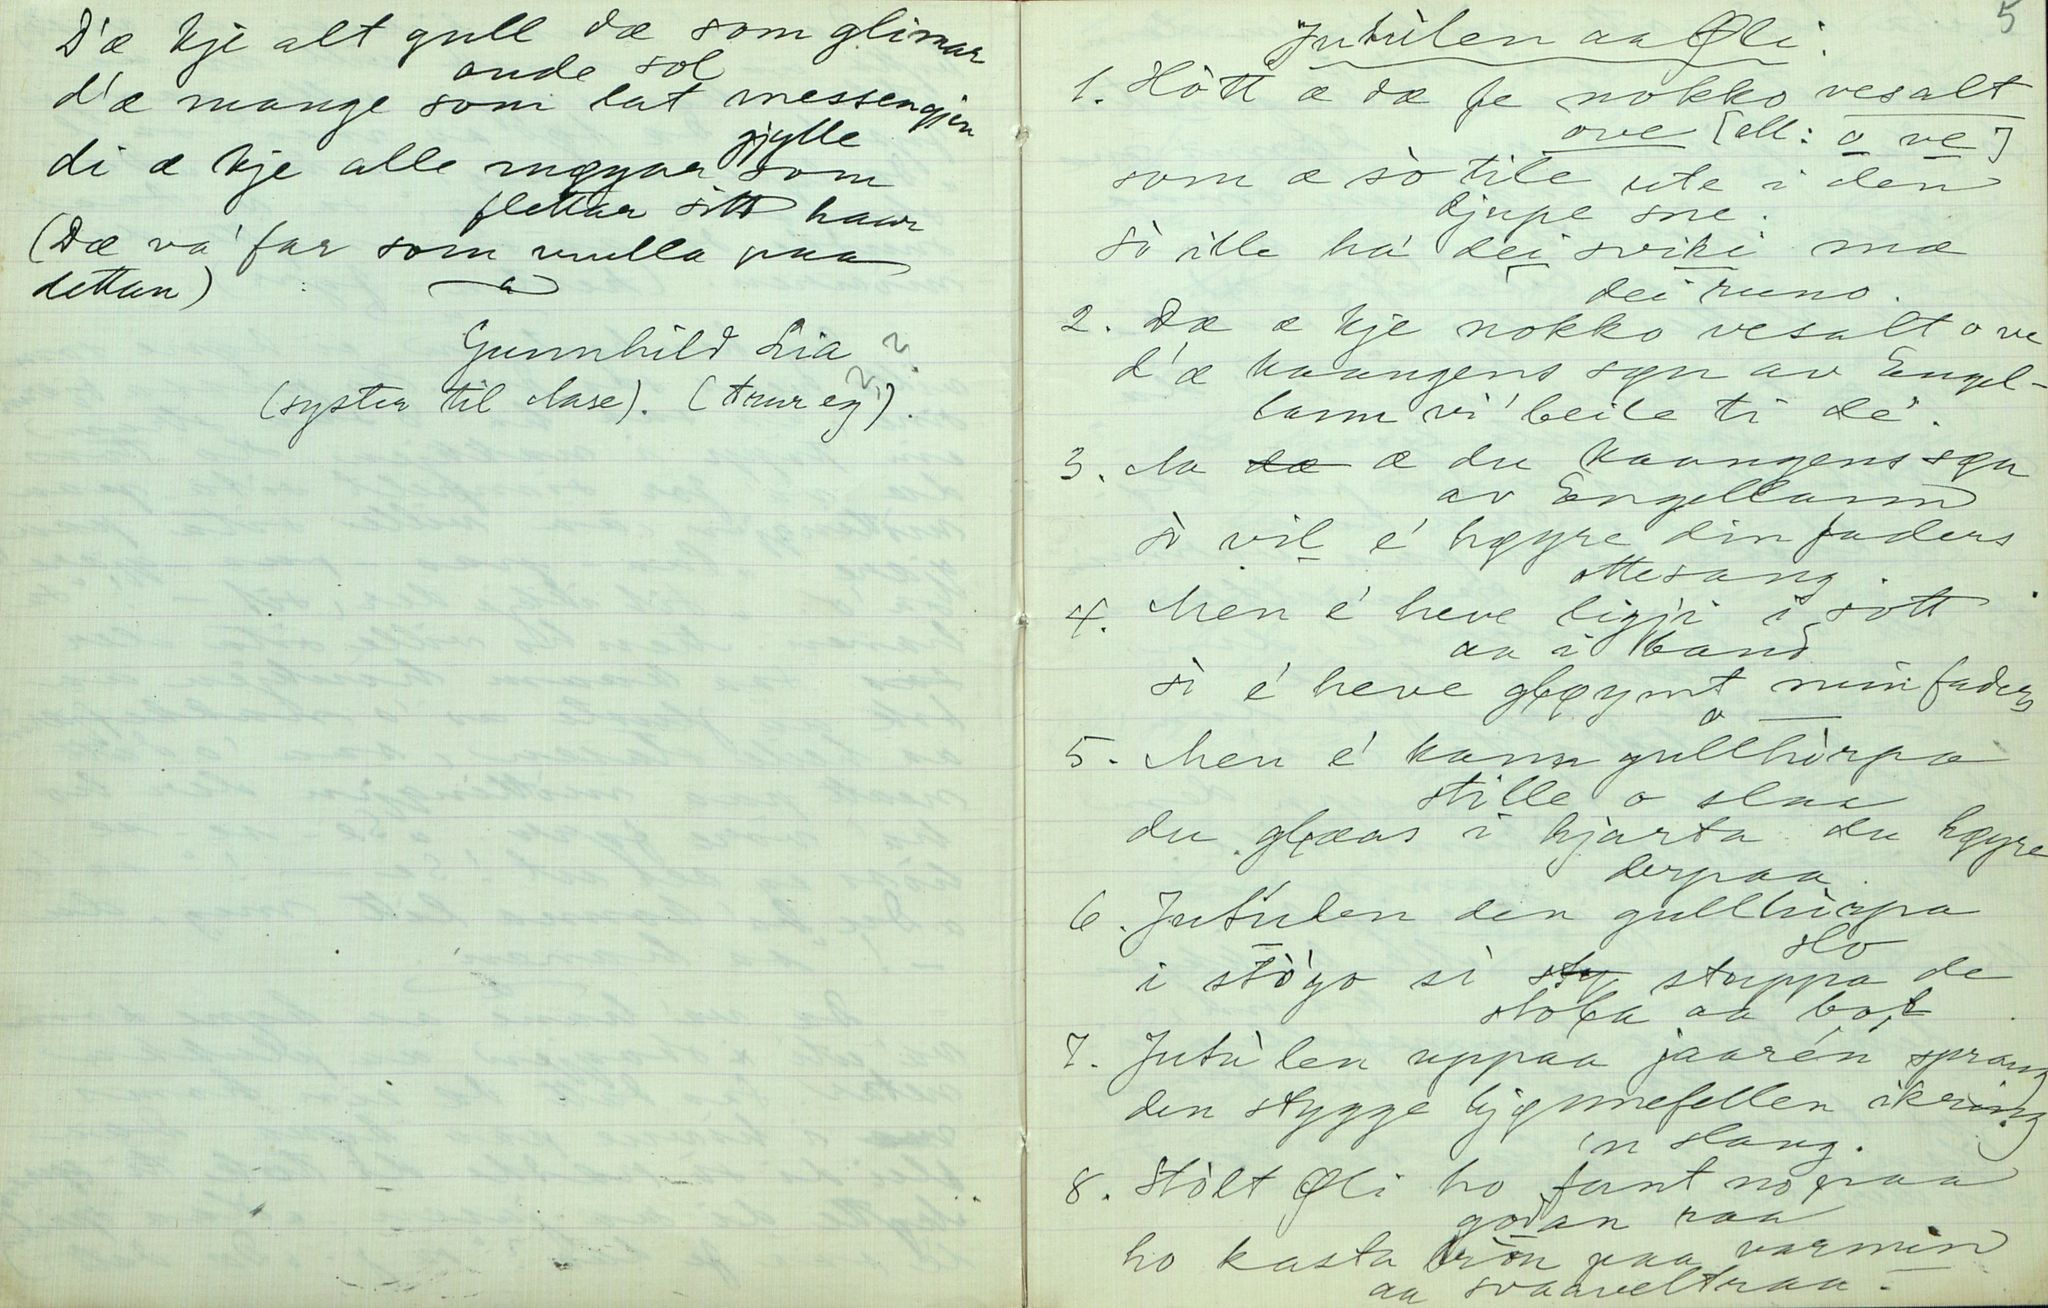 D'æ kje alt gull dæ som glimar
onde sol
d'æ mange som lat messengjen
gjylle
di æ kje alle møyar som
flettar sitt haar
(Dæ va' far som nulla paa
dettan)
Gunnhild Lia ?
(syster til Aase). (trur eg?).
5
Jutulen aa Øli.
1. Hòtt æ dæ fe nokko vesalt
ove [ell: o ve]
som æ sò tile ute i den
djupe sne.
sò ille ha' dei sviki mæ
dei runo.
2. Dæ æ kje nokko vesalt o ve
d'æ kaangens søn av Engel-
lann vi' beile ti de'.
3. Aa æ du kaangens søn
av Engellann
sò vil e' høyre din faders
ottesang.
4. Men e' heve ligji i sott
aa i band
sò e' heve gløymt min faders
o
5. Men e' kann gullhòrpa
stille o slaa
du gløas i hjarta du høyre
derpaa.
6. Jutulen den gullhòrpa
slo
i stògo sò stuppa de
stola aa bol
7. Jutùlen uppaa jaarén sprang
den stygge bjønnefellen ikring
'n slang.
8. Stòlt Øli ho fant no paa
godan raa
ho kasta bròn paa varmen
aa svaaveltraa.